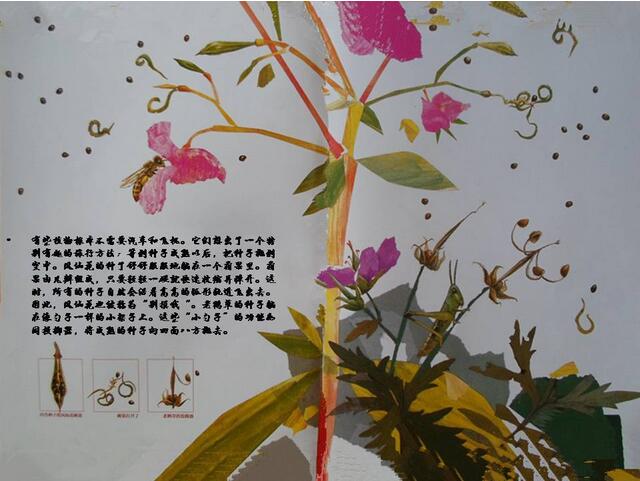 有些植物根本不需要汽车和飞机。它们想出了一个特
别有趣的旅行方法：等到种子成熟以后，把种子抛到
空中。凤仙花的种子舒舒服服地躺在一个荚果里。荚
果由几瓣组成，只要轻轻一碰就会迅速绽开。这
时，所有的种子自然会沿着高高的弧形轨道飞出去。
因此，凤仙花也被称为“别碰我”。老鹳草的种子躺
在像勺子一样的小架子上。这些“小勺子”的功能如
同投掷器，将成熟的种子向四面八方抛去。